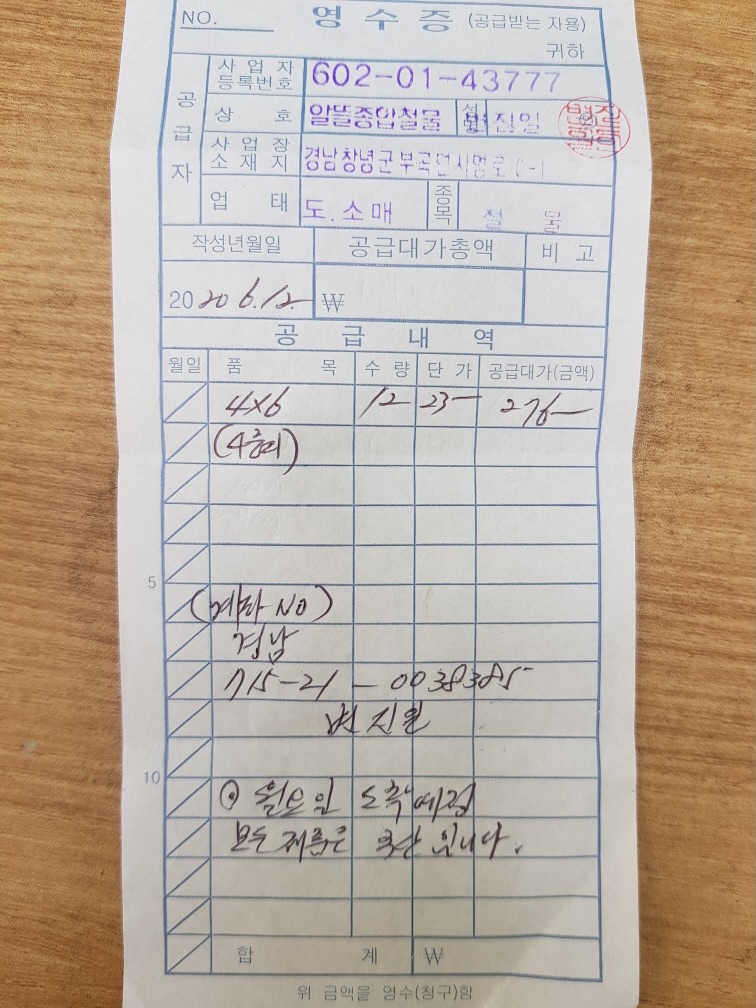 NO. 영 수 증 (공급받는 자용)
귀하
공급자
사업자등록번호 602-01-43777
상 호 알뜰종합철물 성명 변진일
사업장소재지 경남창녕군부곡면사명로
업 태 도.소매 종목 철 물
작성년월일 공급대가총액 비 고
2020 6.12. ₩
공 급 내 역
월일 품 목 수 량 단 가 공급대가(금액)
4×6 12 23- 276-
5
(계좌 NO)
경남
715-21-0038385
변진일
10
⊙ 월요일 도착예정
모든 제품은 국산입니다.
합 계 ₩
위 금액을 영수(청구)함